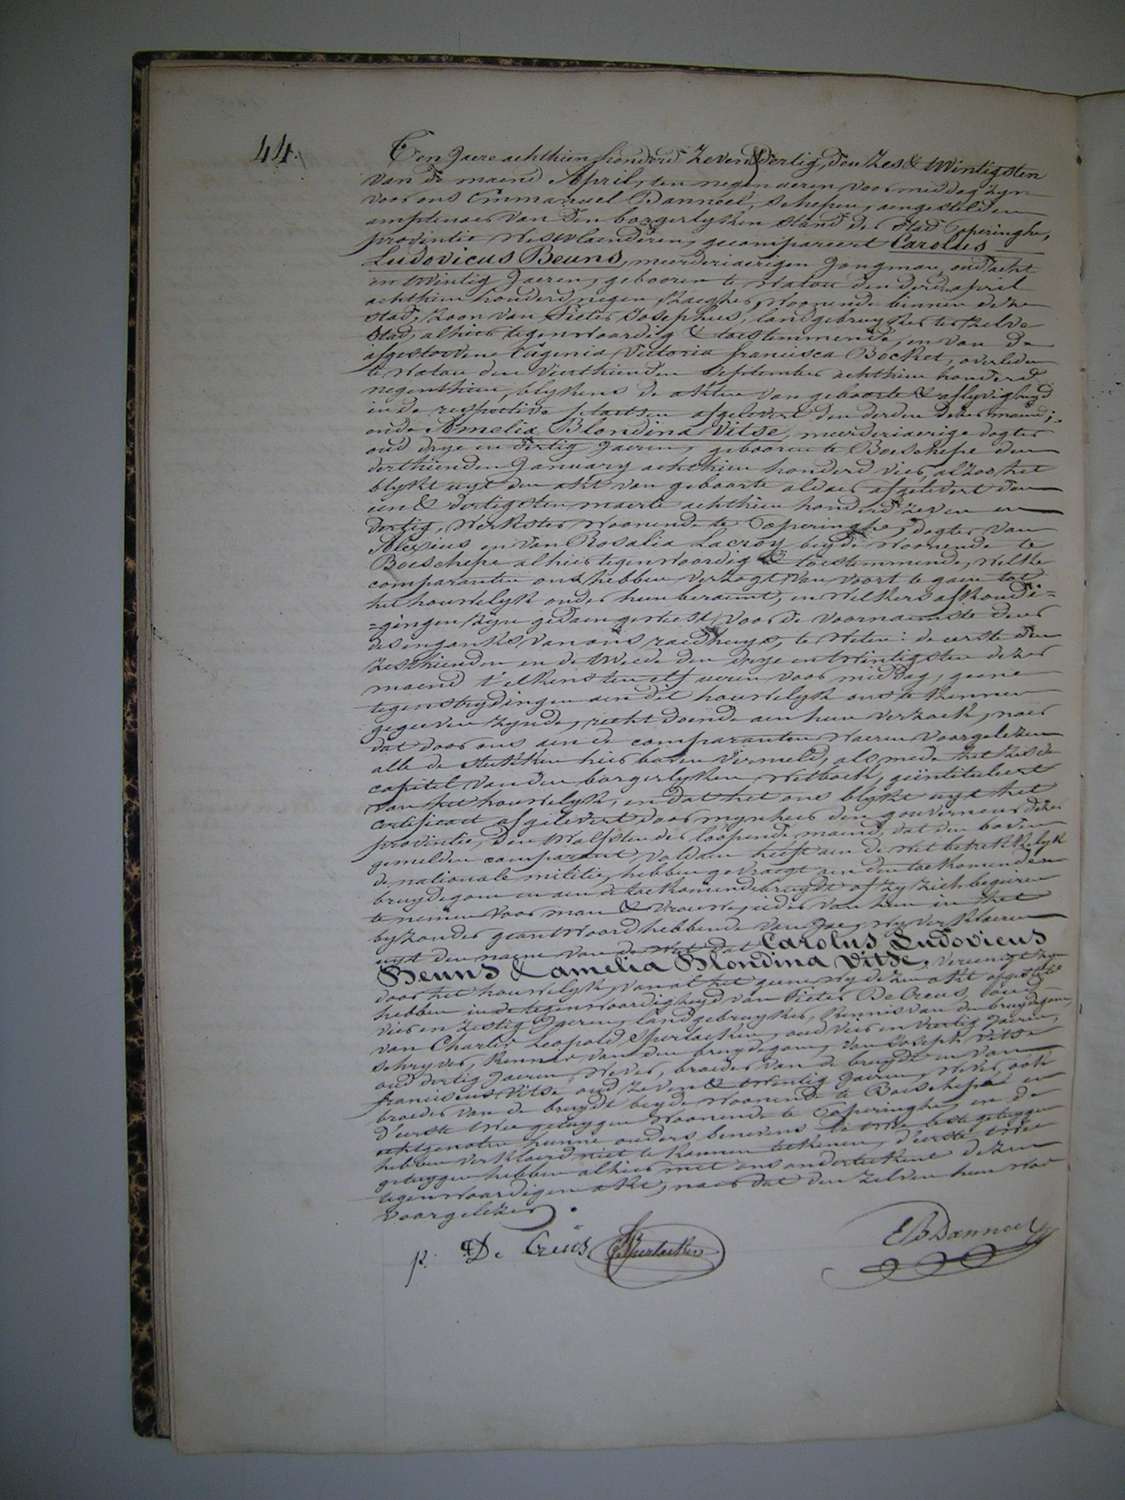 44.
Ten Jaere achthien honderd Zeven & dertig, den Zes & twintigsten
van de maend April, ten negen ueren voormiddag zyn
voor ons Emmanuel Banneel, schepen, aengestelden
amptenaer van den borgerlyken stand der stad Poperinghe,
provintie Westvlaenderen, gecompareert Carolus
Ludovicus Beuns, meerderjaerigen Jongman, oud acht
en twintig Jaeren, geboren te Watou den derden april
achthien honderd negen, woonende binnen deze
stad, zoon van Pieter Josephus, landgebruyker ter zelve
stad, alhier tegenwoordig & toestemmende, en van de
afgestorvene Eugenia Victoria francisca Bocket, overleden
te Watou den Vierthienden September achthien honderd
negenthien, blykens de akten van geboorte & aflyvigheyd
in de respective plaetsen afgelevert den derden dezer maend;
ende Amelia Blondina Vitse, meerderjaerige dogter
oud drye en dertig Jaeren, geboren te Boeschepe den
derthienden January achthien honderd vier, alzoo het
blykt uyt den akt van geboorte aldaer afgelevert den
een & dertigsten maerte achthien honderd zeven en
dertig, Werkster woonende te Poperinghe, dogter van
Alexius en van Rosalia Lacroy beyde woonende te
Boeschepe alhier tegenwoordig & toestemmende, welke
comparanten ons hebben verzogt van voort te gaen tot
het houwelyk onder hun beraemt, en welkers afkondi=
=gingen zyn gedaen geweest voor de voornaemste deur
des ingangs van ons raedhuys, te weten: de eerste den
zesthienden en de tweede den drye en twintigsten dezer
maend t'elkens ten elf ueren voor middag, geene
tegenstrydingen aen dit houwelyk ons te kennen
gegeven zynde, recht doende aen hun verzoek, naer
dat door ons aen de comparanten waeren voorgelezen
alle de stukken hier boven vermeld, als mede het zesde
capitel van den borgerlyken Wetboek, geintituleert
van het houwelyk, en dat het ons blykt uyt het
certificaet afgelevert door mynheer den gouverneur dezer
provintie, den twalfsten der loopende maend, dat den boven
gemelden comparant voldaen heeft aen de wet betrekkelyk
de nationale militie, hebben gevraegt aen den toekomenden
bruydegom en aen de toekomende bruydt of zy zich begeiren
te nemen voor man & vrouw, ieder van hun in het
byzonder geantwoord hebbende van Jae, wy verklaeren
uyt den naem van de Wet dat Carolus Ludovicus
Beuns & amelia Blondina Vitse, vereenigt zyn
door het houwelyk, van al het geene wy dezen akt opgesteld
hebben in de tegenwoordigheyd van Pieter De Creus, oud
vier en zestig Jaeren, landgebruyker, kennis van den bruydegom,
van Charles Leopold Spurlacken, oud vier en veertig Jaeren,
schryver, kennis van den bruydegom, van Joseph Vitse
oud dertig Jaeren, Wever, broeder van de bruydt en van
franciscus Vitse oud zeven & twintig Jaeren, Wever, ook
broeder van de bruydt beyde woonende te Boeschepe en
d'eerste twee getuygen woonende te Poperinghe, en de
echtgenoten hunne ouders benevens de twee leste getuygen
hebben verklaerd niet te konnen teekenen, d'eerste twee
getuygen hebben alhier met ons onderteekent dezen
tegenwoordigen akt, naer dat den zelven hun was
voorgelezen
p: De Creus Spurlacken EBDanneel